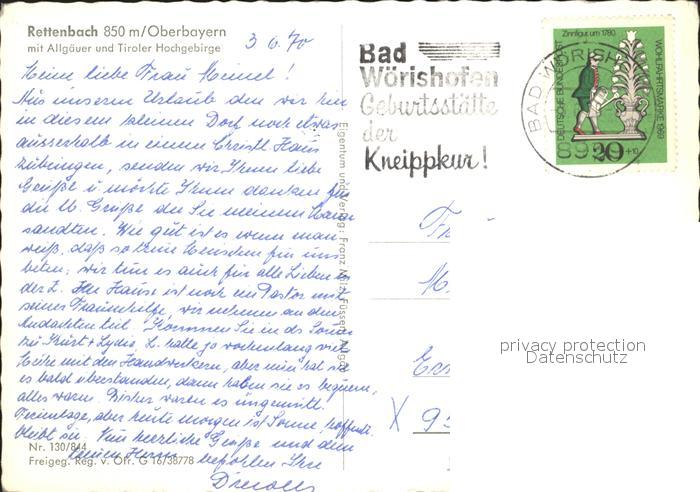 Rettenbach 850 m/Oberbayern
mit Allgäuer und Tiroler Hochgebirge
3 6. 70
Meine liebe Frau
Aus unserem Urlaub den wir hier
in diesem kleinen Dorf noch etwas
ausserhalb in einem Christl. Haus
zubringen, senden wir Ihnen liebe
Grüße u möchte Ihnen danken für
die lb. Grüße die Sie meinem
sandten. Wie gut ist es wenn man
weiß, daß so treue Menschen für uns
beten; wir tun es auch für alle Lieben
der Z. Im Hause ist noch ein Pastor mit
seiner wir nehmen an den
Andachten teil. Kommen Sie in ds. Sommer
zu Kurt + Lydia. L. hatte ja wochenlang viel
Mühe mit den Handwerkern, aber nun hat sie
es bald überstanden, dann haben sie es bequem,
alles warm. Bisher waren es ungemütl.
Ferientage, aber heute morgen ist Sonne, hoffentl.
bleibt sie. Nun herzliche Grüße und dem
Herrn befohlen Ihre
Nr. 130/844
Freigeg. Reg. v. Ofr. G 16/38778
Eigentum und Verlag: Franz Milz, Füssen, Allgäu
Bad
Wörishofen
Geburtsstätte
der
Kneippkur!
Zinnfigur, um 1780
DEUTSCHE BUNDESPOST
WOHLFAHRTSMARKE 1969
20+10
BAD WÖRISHOFEN
893
X
privacy protection
Datenschutz